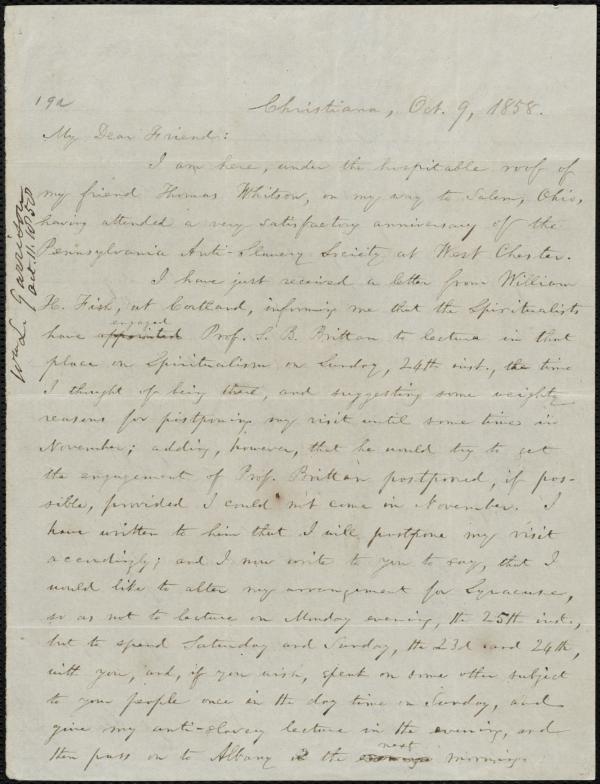 192
Christiana, Oct. 9, 1858.
My Dear Friend:
I am here, under the hospitable roof of
my friend Thomas Whitson, on my way to Salem, Ohio,
having attended a very satisfactory anniversary of the
Pennsylvania Anti-Slavery Society at West Chester.
I have just received a letter from William
H. Fish, at Cortland, informing me that the Spiritualists
have appointed engaged Prof. S. B. Brittan to lecture in that
place on Spiritualism on Sunday, 24th inst., the time
I thought of being there, and suggesting some weighty
reasons for postponing my visit until some time in
November; adding, however, that he would try to get
the engagement of Prof. Brittan postponed, if pos-
sible, provided I could not come in November. I
have written to him that I will postpone my visit
accordingly; and I now write to you to say, that I
would like to alter my arrangement for Syracuse,
so as not to lecture on Monday evening, the 25th inst.,
but to spend Saturday and Sunday, the 23d and 24th,
with you, and, if you wish, speak on some other subject
to your people once in the day time on Sunday, and
give my anti-slavery lecture in the evening, and
then pass on to Albany the next morning.
Wm L. Garrison
Oct. 11. 1858